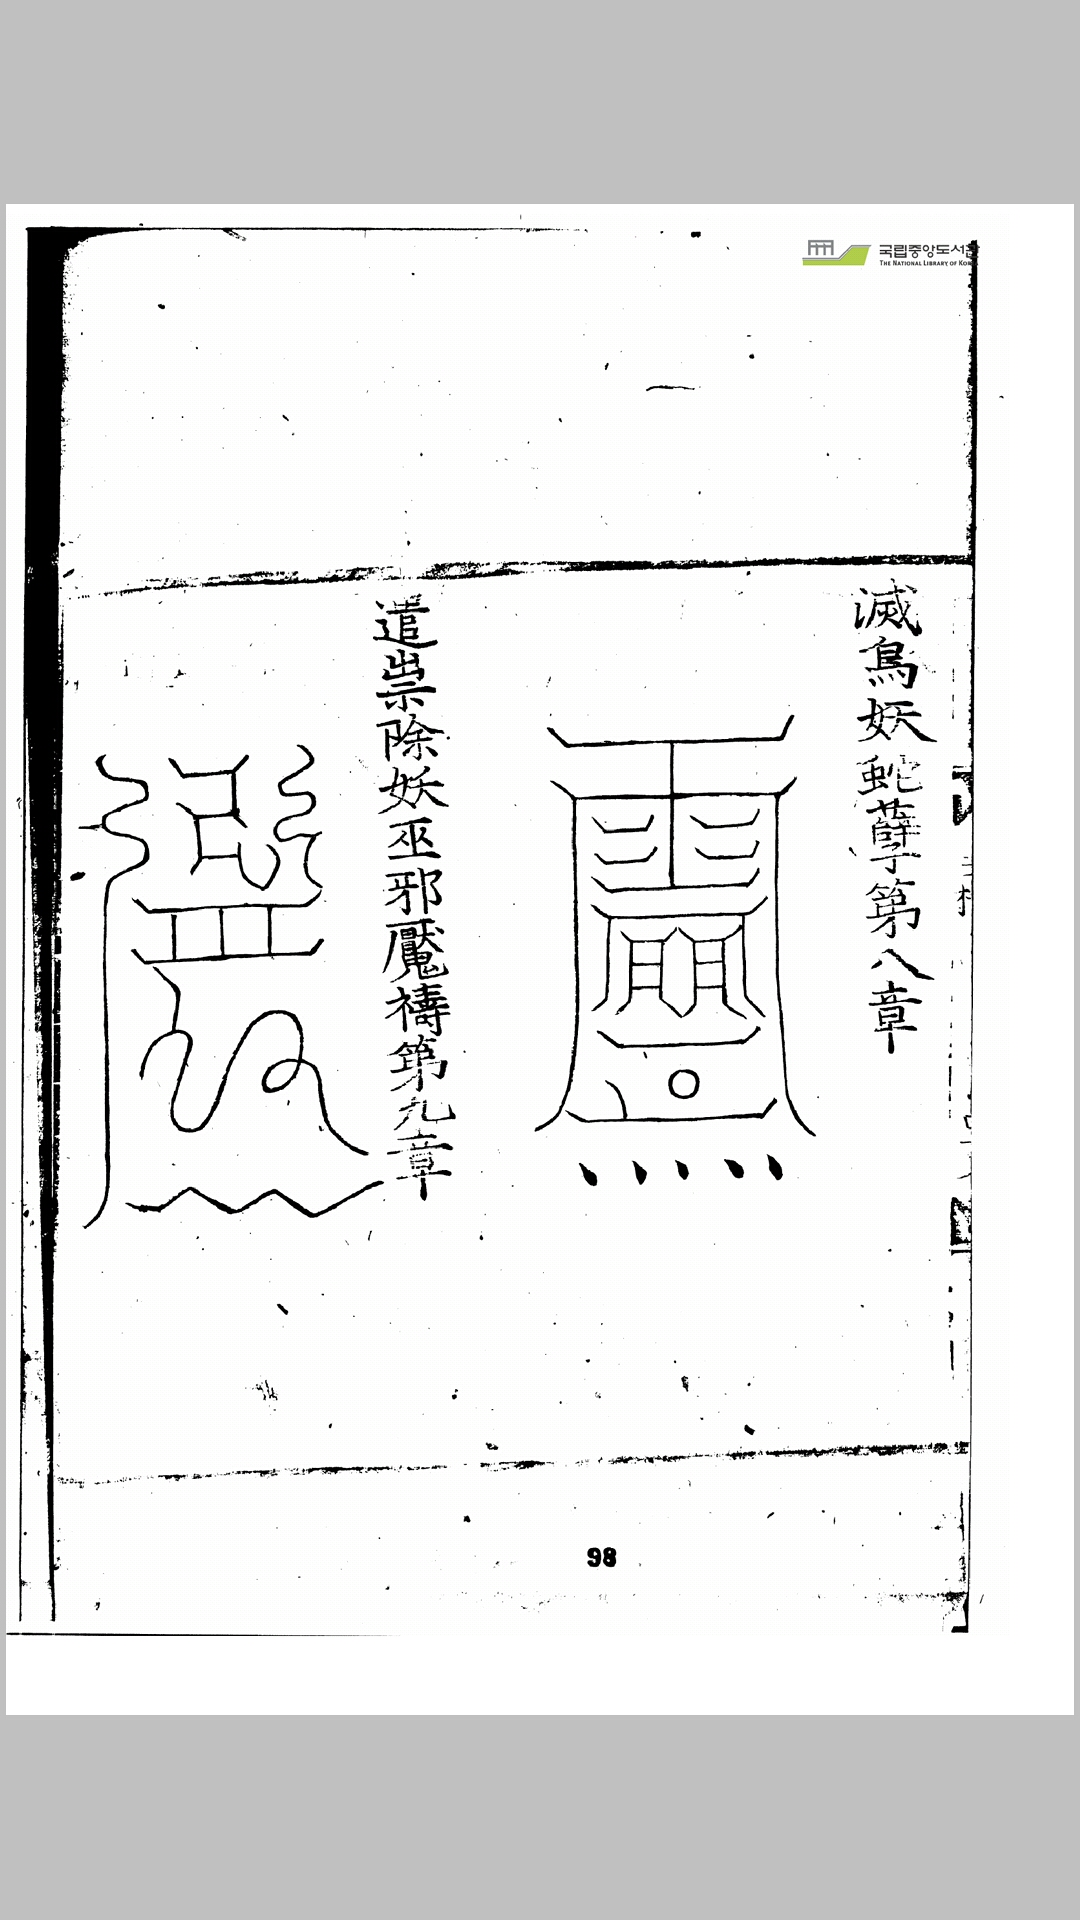 국립중앙도서관
THE NATIONAL LIBRARY OF KOREA
滅鳥妖蛇孽第八章
遣祟除妖巫邪魘禱第九章
98